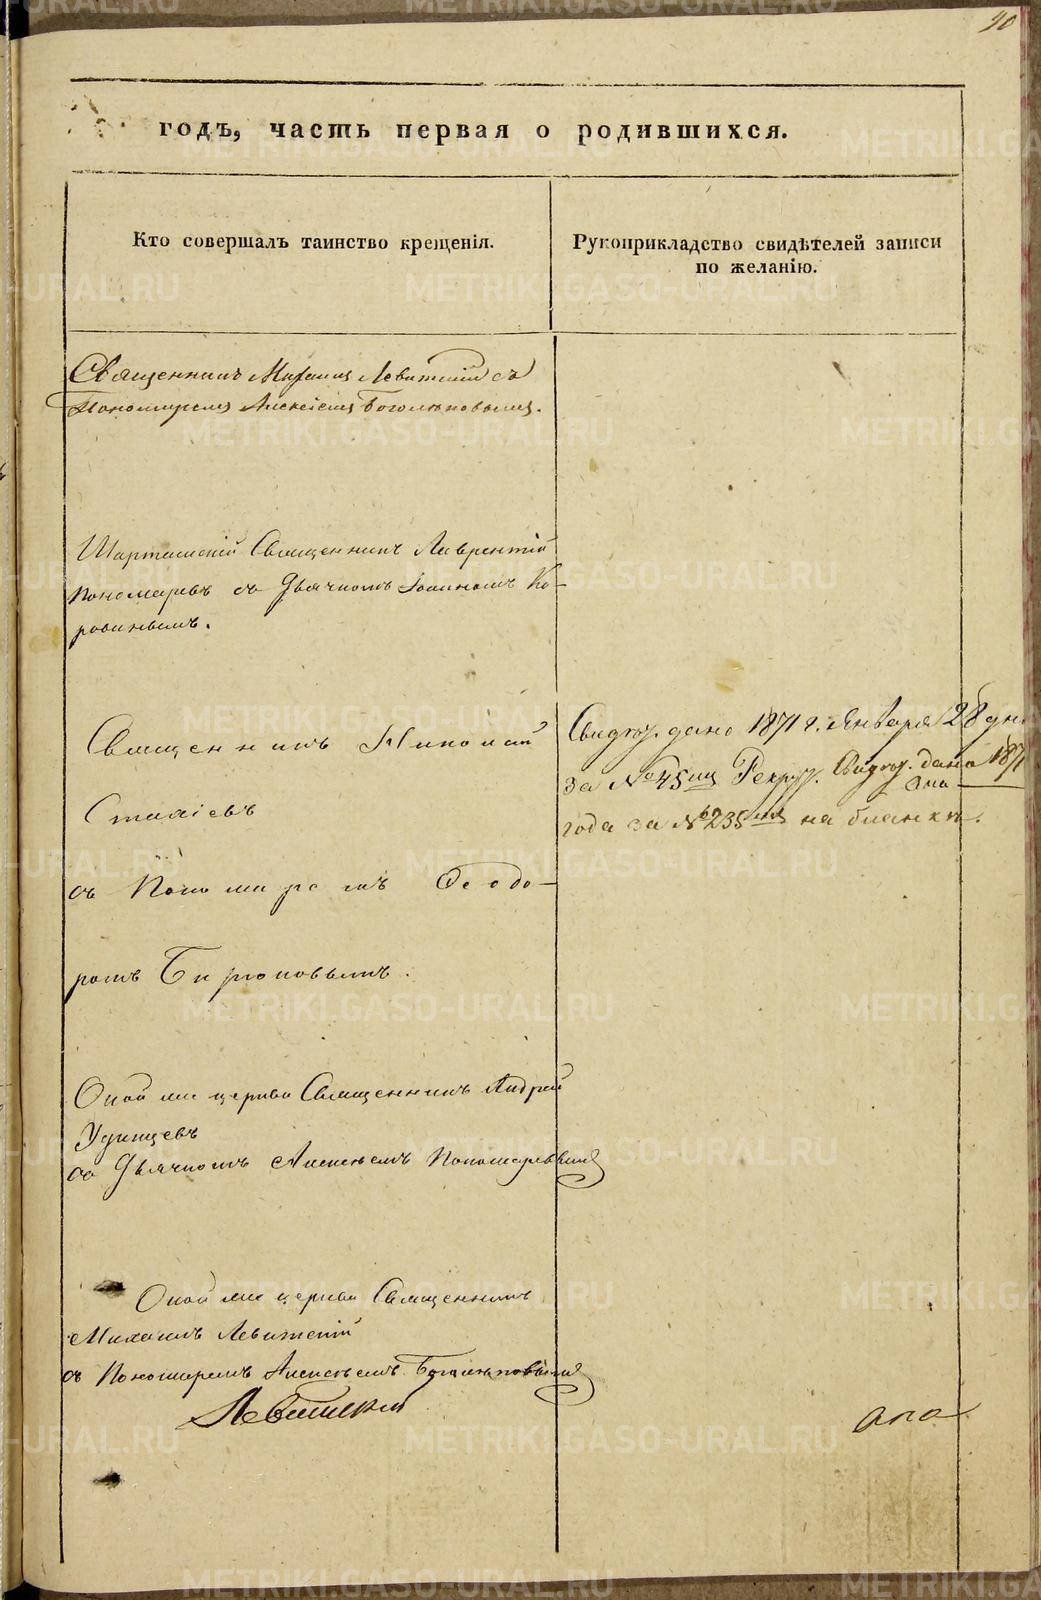 годъ, часть первая о родившихся.
Кто совершалъ таинство крещенія.
Рукоприкладство свидѣтелей записи
по желанію.
Священникъ Михаилъ Левитскій съ
Пономаремъ Алексіемъ Боголюповымъ.
Шарташскій Священникъ Лаврентій
Пономаревъ съ Дьячкомъ Іоанномъ Ко-
ровинымъ.
Священникъ Николай
съ Пономаремъ Ѳеодо-
ромъ Бирюковымъ.
Свидѣт. дано 1871 г. Января 28 дня
за № 45 Рекрут. Свидѣт. дано 1871
года за № 235 на бланкѣ.
Оной же церкви Священникъ Андрей
Удинцевъ
съ Дьячкомъ Алексѣемъ Пономаревымъ
Оной же церкви Священникъ
Михаилъ Левитскій
съ Пономаремъ Алексѣемъ Боголюповымъ
Левитскій
METRIKI.GASO-URAL.RU